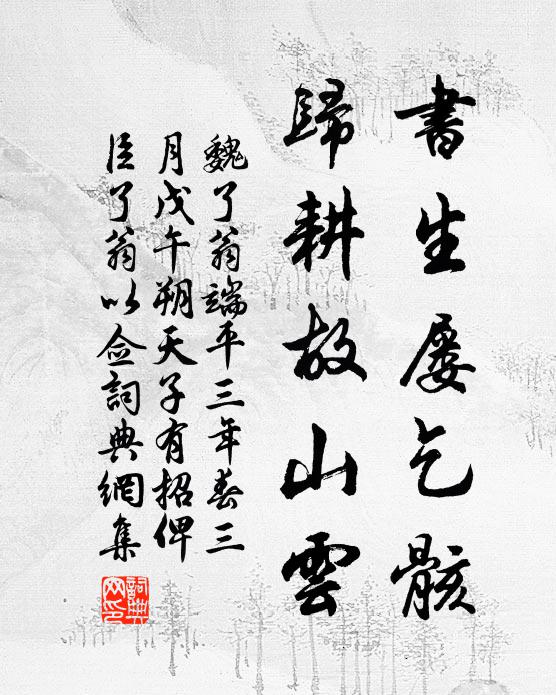 書生屡乞骸
歸耕故山雲
魏了翁端平三年春三
月戊午朔天子有招俾
臣了翁以僉詞典網集
詞典網印